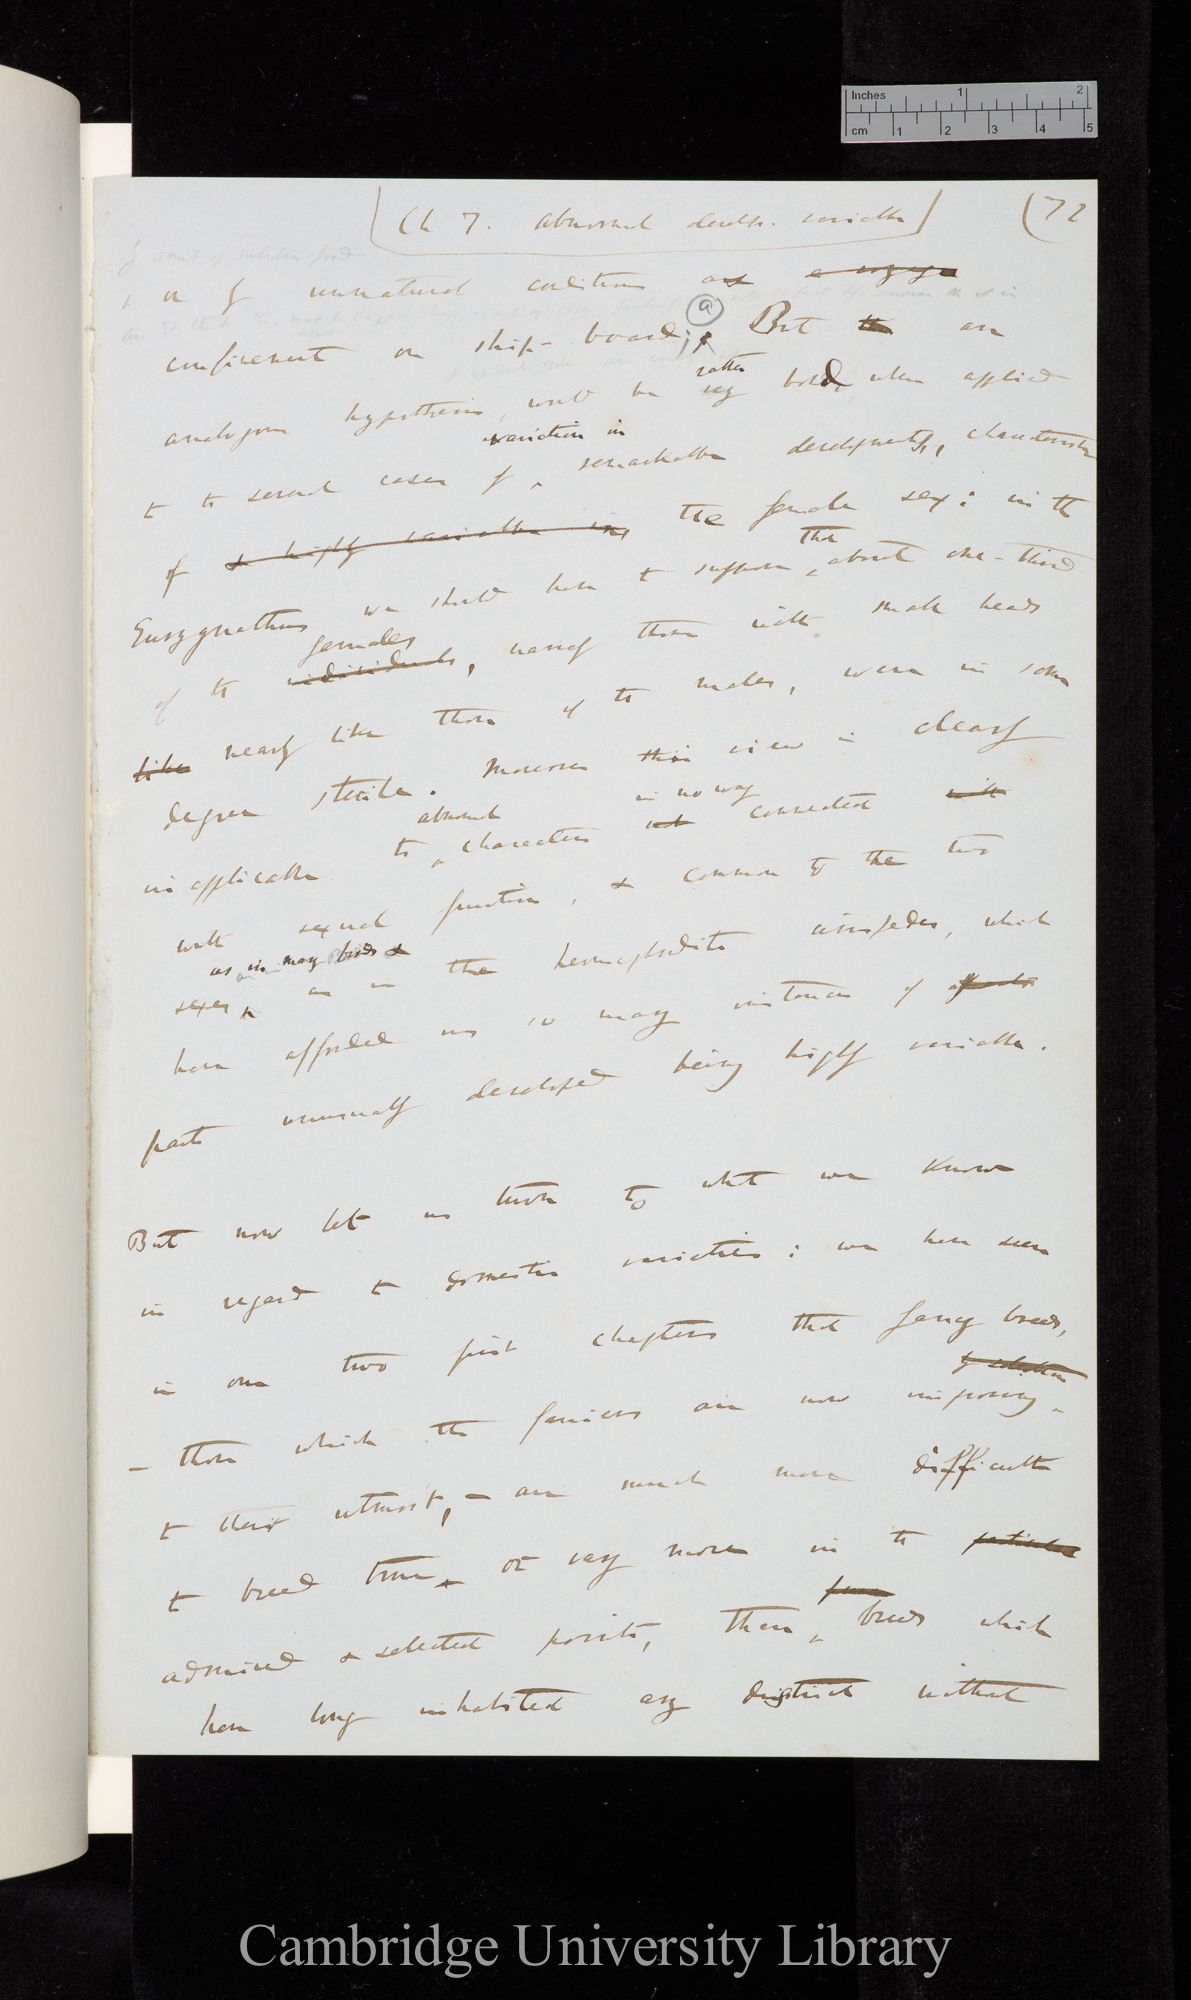 Inches 1 2
cm 1 2 3 4 5
(Ch 7. abnormal develp. variable) (72
or of unnatural conditions as a voyage
confinement on ship-board; (a) But th an
analogous hypothesis, would be rather bold, when applied
variation in
to to several cases of remarkable developments, characteristic
of a highly variable in, the female sex: in the
Eurygnathus we should have to suppose that about one-third
females
of the individuals, namely those with small heads
like nearly like those of the males, were in some
degree sterile. Moreover this view is clearly
abnormal in no way
inapplicable to characters not connected with
with sexual function, & common to the two
as in many birds &
sexes, as in the hermaphrodite cirripedes, which
have afforded us so many instances of
parts unusually developed being highly variable.
But now let us turn to what we know
in regard to domestic varieties: we have seen
in our two first chapters that fancy breeds,
by selection
— those which the fanciers are now improving
to their utmost, — are much more difficult
to breed true, or vary more in the particular
admired & selected points, than breeds which
have long inhabited any district without
Cambridge University Library